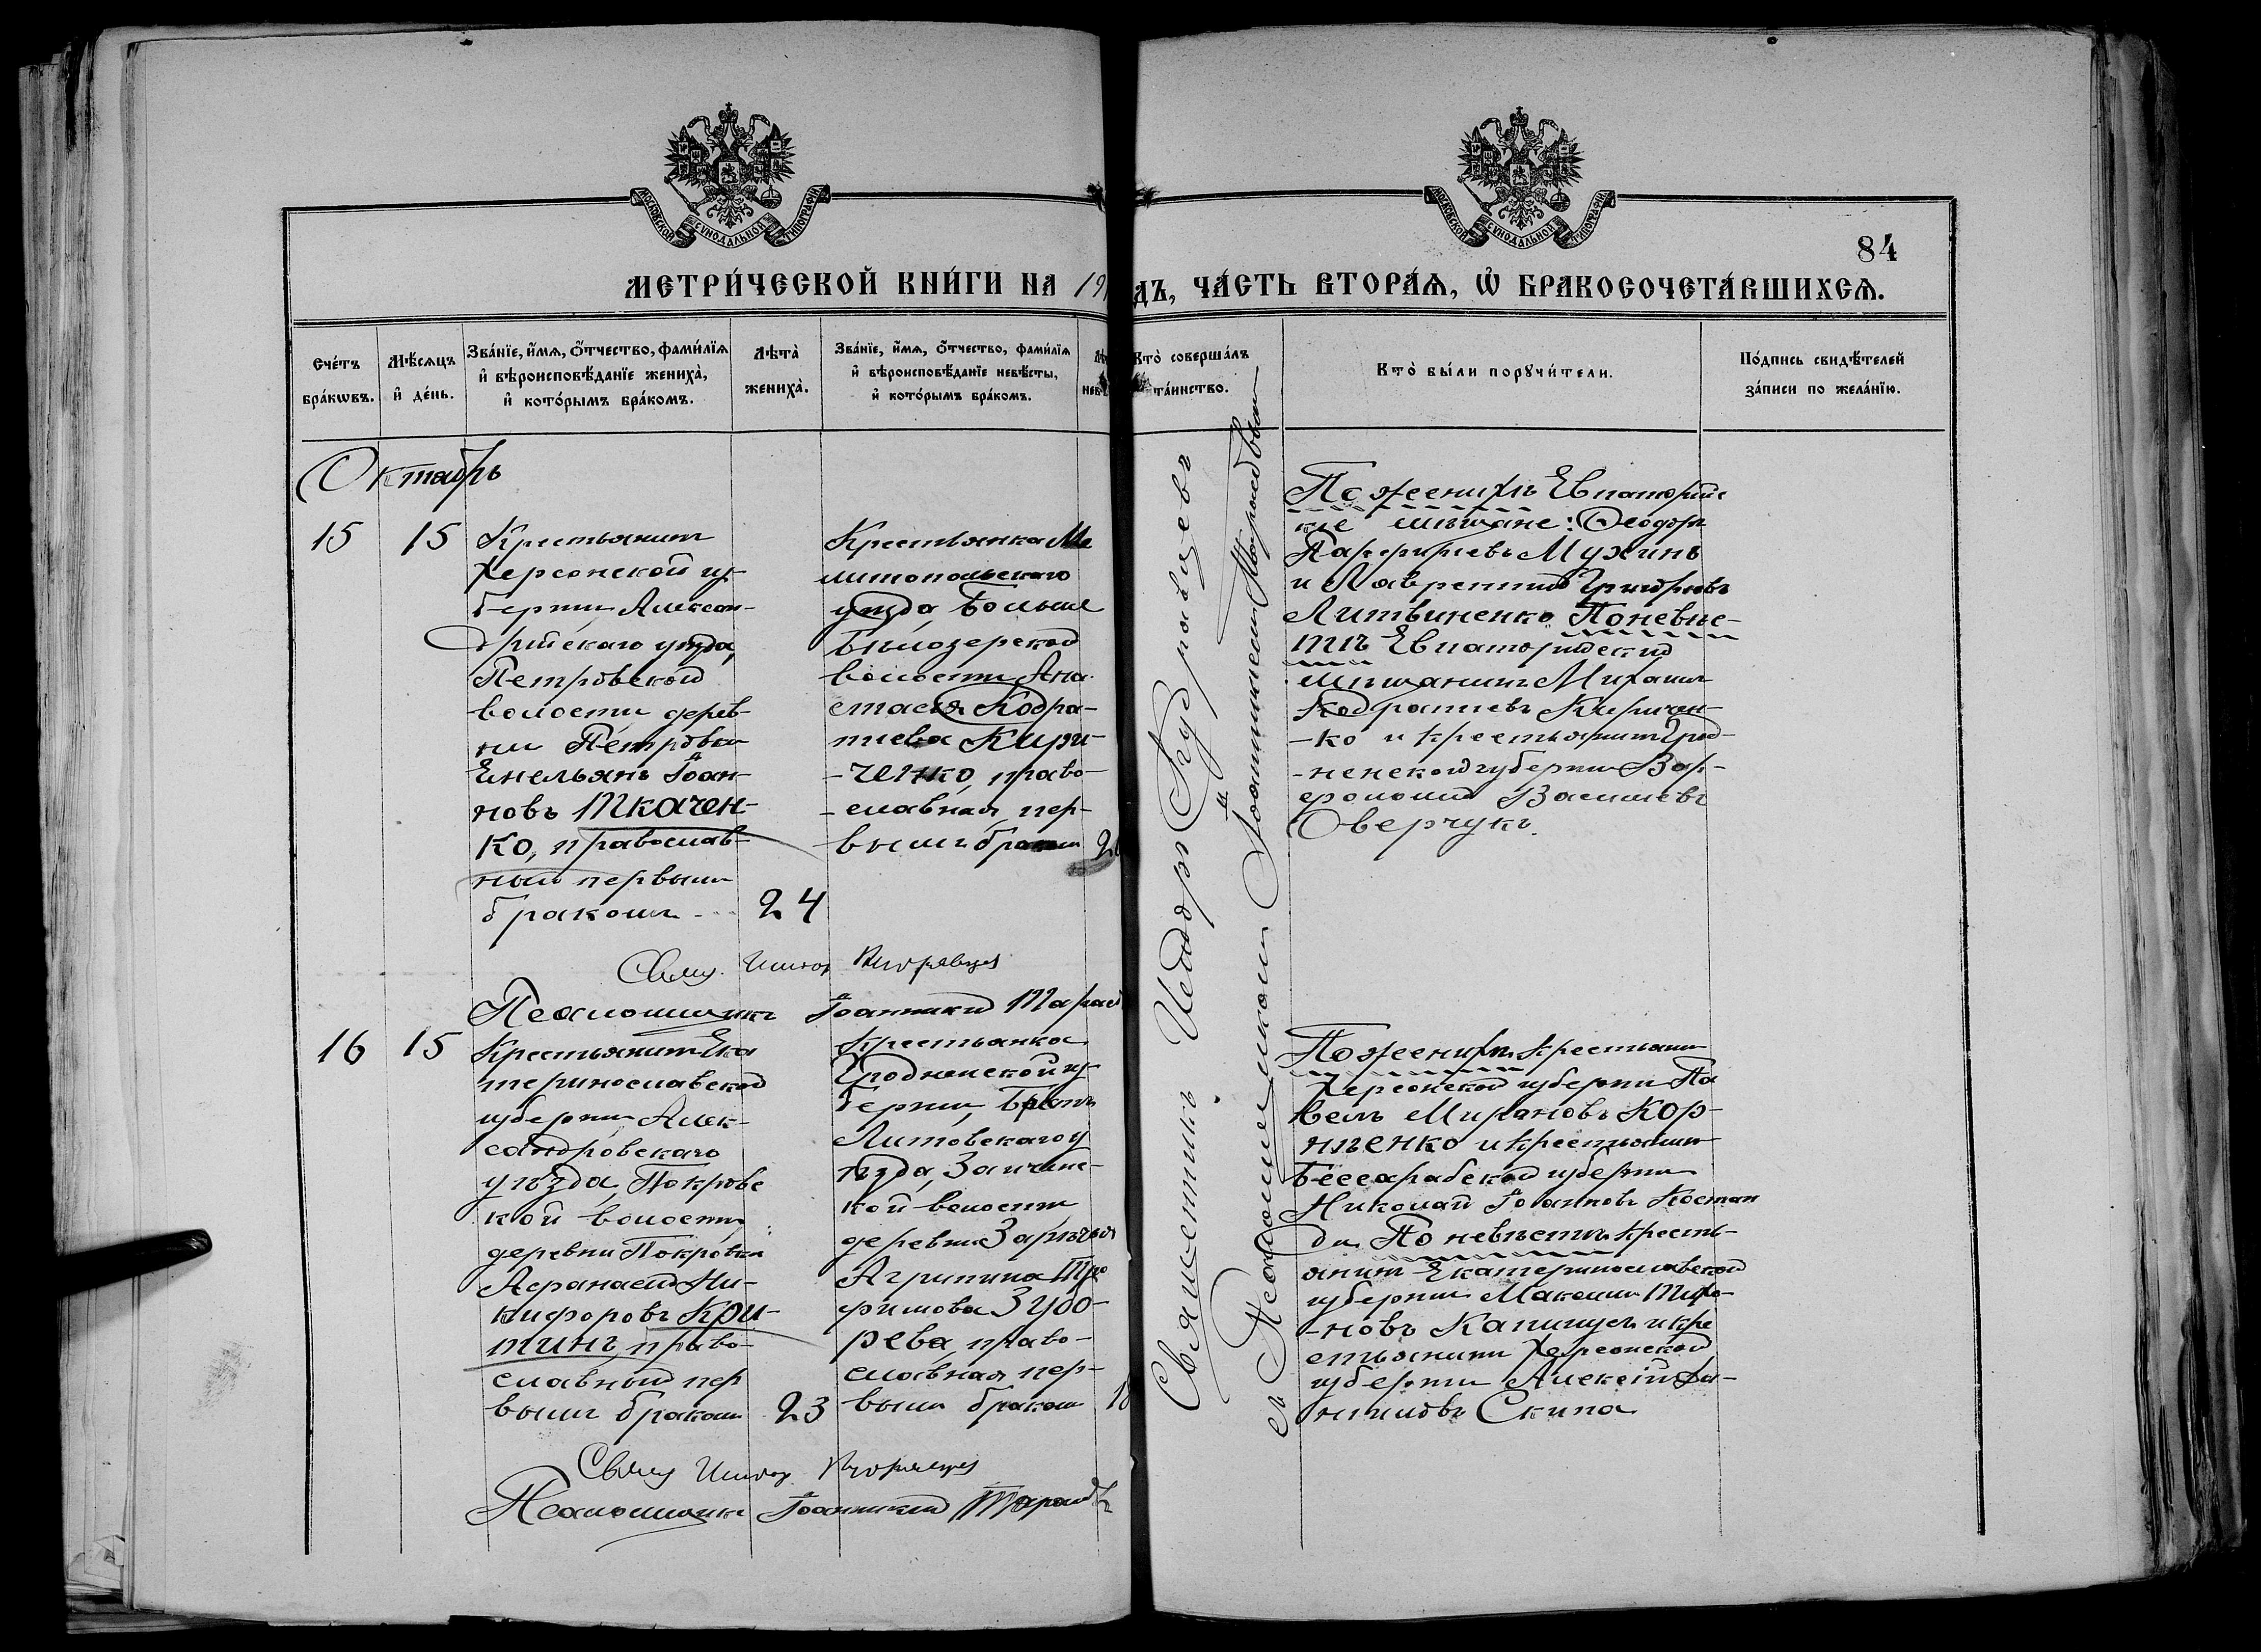 МОСКОВСКОЙ СУНОДАЛЬНОЙ ТИПОГРАФІИ
МОСКОВСКОЙ СУНОДАЛЬНОЙ ТИПОГРАФІИ
84
МЕТРИ́ЧЕСКОЙ КНИ́ГИ НА 19
ДЪ, ЧА́СТЬ ВТОРА́Ѧ, Ѡ҆ БРАКОСОЧЕТА́ВШИХСѦ.
Сче́тъ бра́кѡвъ.
Мѣ́сѧцъ и҆ де́нь.
Зва́нїе, и҆́мѧ, ѻ҆́тчество, фами́лїѧ
и҆ вѣроисповѣ́данїе жениха̀,
и҆ кото́рымъ бра́комъ.
Лѣта̀ жениха̀.
Зва́нїе, и҆́мѧ, ѻ҆́тчество, фами́лїѧ
и҆ вѣроисповѣ́данїе невѣ́сты,
и҆ кото́рымъ бра́комъ.
Кто̀ соверша́лъ
та́инство.
Кто̀ бы́ли порꙋчи́тели.
По́дпись свидѣ́телей
за́писи по жела́нїю.
Октябрь
15
15
Крестьянинъ
Херсонской гу-
берніи Алексан-
дрійскаго уѣзда,
Петровской
волости дерев-
ни Петровки
Емельянъ Іоан-
новъ Ткачен-
ко, православ-
ный первымъ
бракомъ
24
Крестьянка Ме
литопольскаго
уѣзда, Больше
Бѣлозерской
волости Ана-
стасія Кодра-
тіева Кири-
-ченко, право-
-славная, пер-
вымъ бракомъ
2
Свящ. Исидоръ Кудрявцев
Псаломщикъ Іоанникій Тарас
Священникъ Исидоръ Кудрявцевъ
съ Псаломщикомъ Іоанникіемъ
По женихѣ Евпаторійс
кіе мѣщане: Ѳеодоръ
Парфиріевъ Мухинъ
и Лаврентій Григорьевъ
Литвиненко По невѣс-
тѣ Евпаторійскій
мѣщанинъ Михаилъ
Кодратіевъ Киричен-
-ко и крестьянинъ Грод-
-ненской губерніи Вар-
фоломій Василіевъ
Оверчукъ.
16
15
Крестьянинъ Ека
теринославской
губерніи Алек-
сандровскаго
уѣзда, Покровс
кой волости
деревни Покровки
Афанасій Ни-
кифоровъ Кри-
тинъ, право-
славный пер
вымъ бракомъ
23
Крестьянка
Гродненской гу-
берніи, Брестъ
Литовскаго у
ѣзда,
кой волости
деревни Зарѣчья
Агрипина Тро
фимова Зубо-
рева, право-
славная пер-
вымъ бракомъ
18
По женихѣ крестьянинъ
Херсонской губерніи Па
велъ Мироновъ Кор-
нѣенко и крестьянинъ
Бессарабской губерніи
Николай Іоанновъ Костан
ди По невѣстѣ кресть-
янинъ Екатеринославской
губерніи Максимъ
-новъ и кре
стьянинъ Херсонской
губерніи Алексій Да-
ниловъ Скипа
Свящ Исидор Кудрявцев
Псаломщикъ Іоанникій